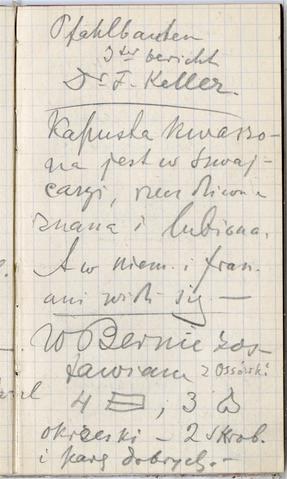 Pfahlbauten
3ter bericht
Dr F. Keller.
Kapusta kwaszo-
na jest w Szwaj-
carji,
znana i lubiana.
A w niem. i fran.
ani widu się —
W Bernie zos-
tawiam z Ossowski
4 , 3
okrzeski — 2 skrob.
i parę dobrych. —